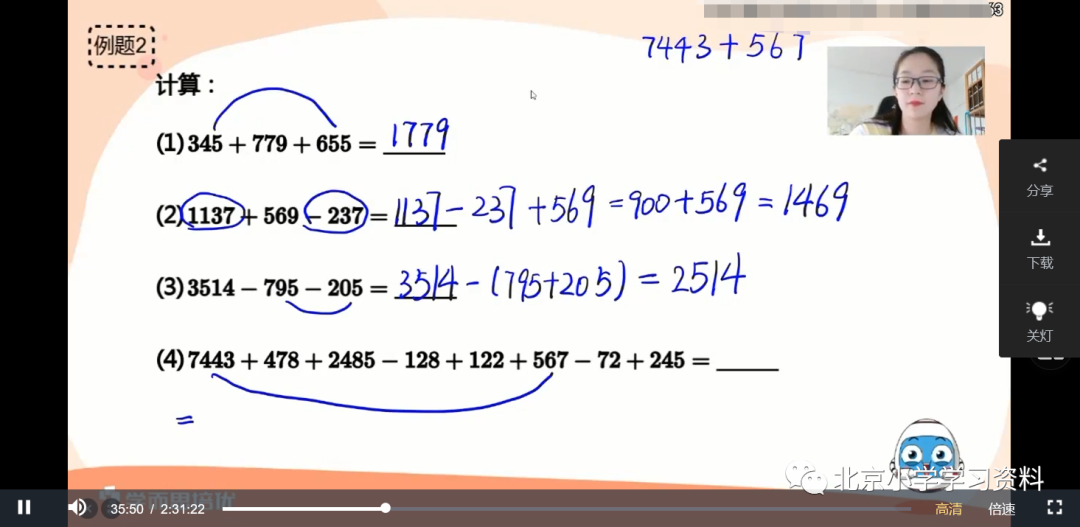 63
例题2
7443+567
计算：
(1)345+779+655=1779
(2)1137+569-237=1137-237+569=900+569=1469
(3)3514-795-205=3514-(795+205)=2514
(4)7443+478+2485-128+122+567-72+245=
=
分享
下载
关灯
学而思培优
北京小学学习资料
35:50 / 2:31:22
高清
倍速